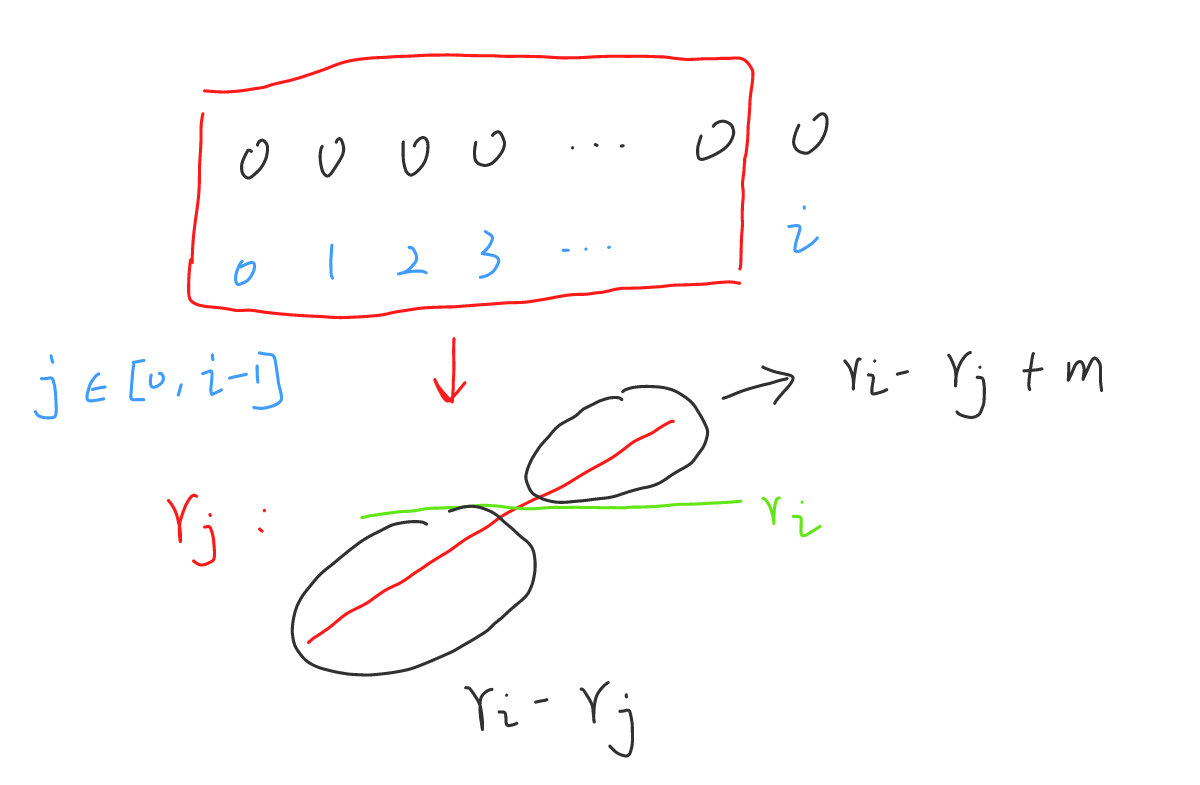 0 0 0 0 ... 0 0
0 1 2 3 ... i
j ∈ [0, i-1]
r_i - r_j + m
r_j : r_i
r_i - r_j